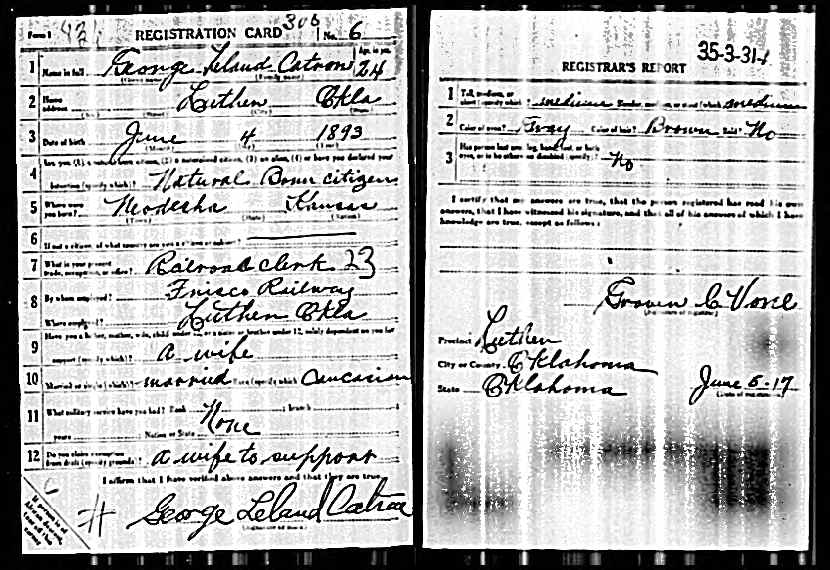 Form 1 REGISTRATION CARD 306 No. 6
1 Name in full George Leland Catron 24
Age, in yrs.
2 Home address Luther Okla
3 Date of birth June 4 1893
4 Are you (1) a natural born citizen, (2) a naturalized citizen, (3) an alien, (4) or have you declared your
intention (specify which)? Natural Born citizen
5 Where were you born? Neodesha Kansas
(Town) (State) (Nation)
6 If not a citizen, of what country are you a citizen or subject?
7 What is your present trade, occupation, or office? Railroad clerk 23
8 By whom employed? Frisco Railway
Where employed? Luther Okla
9 Have you a father, mother, wife, child under 12, or a sister or brother under 12, solely dependent on you for
support (specify which)? a wife
10 Married or single (which)? married Race (specify which)? Caucasian
11 What military service have you had? Rank None branch
years Nation or State
12 Do you claim exemption from draft (specify grounds)? a wife to support
I affirm that I have verified above answers and that they are true
George Leland Catron
35-3-31-
REGISTRAR'S REPORT
1 Tall, medium, or short (specify which)? medium Slender, medium, or stout (which)? medium
2 Color of eyes? Gray Color of hair? Brown Bald? No
3 Has person lost arm, leg, hand, foot, or both
eyes, or is he otherwise disabled (specify)? No
I certify that my answers are true, that the person registered has read his own
answers, that I have witnessed his signature, and that all of his answers of which I have
knowledge are true, except as follows:
Grover C
Precinct Luther
City or County Oklahoma
State Oklahoma June 5-17